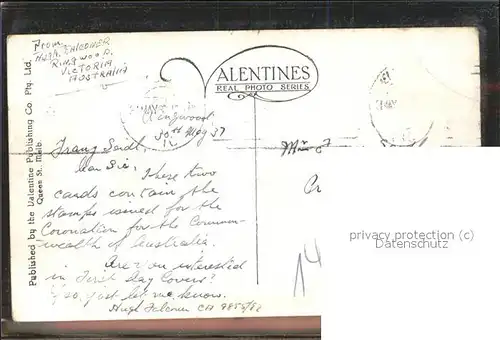 From
Hugh Falconer
Ringwood.
Victoria
Australia
VALENTINES
REAL PHOTO SERIES
Published by the Valentine Publishing Co Pty. Ltd.
Queen St. Melb.
Ringwood
30th May 37
Franz Seidl,
Dear Sir, These two
cards contain the
stamps issued for the
Coronation for the Common-
wealth of Australia.
Are you interested
in First Day Covers?
If so, just let me know.
Hugh Falconer
privacy protection (c)
Datenschutz